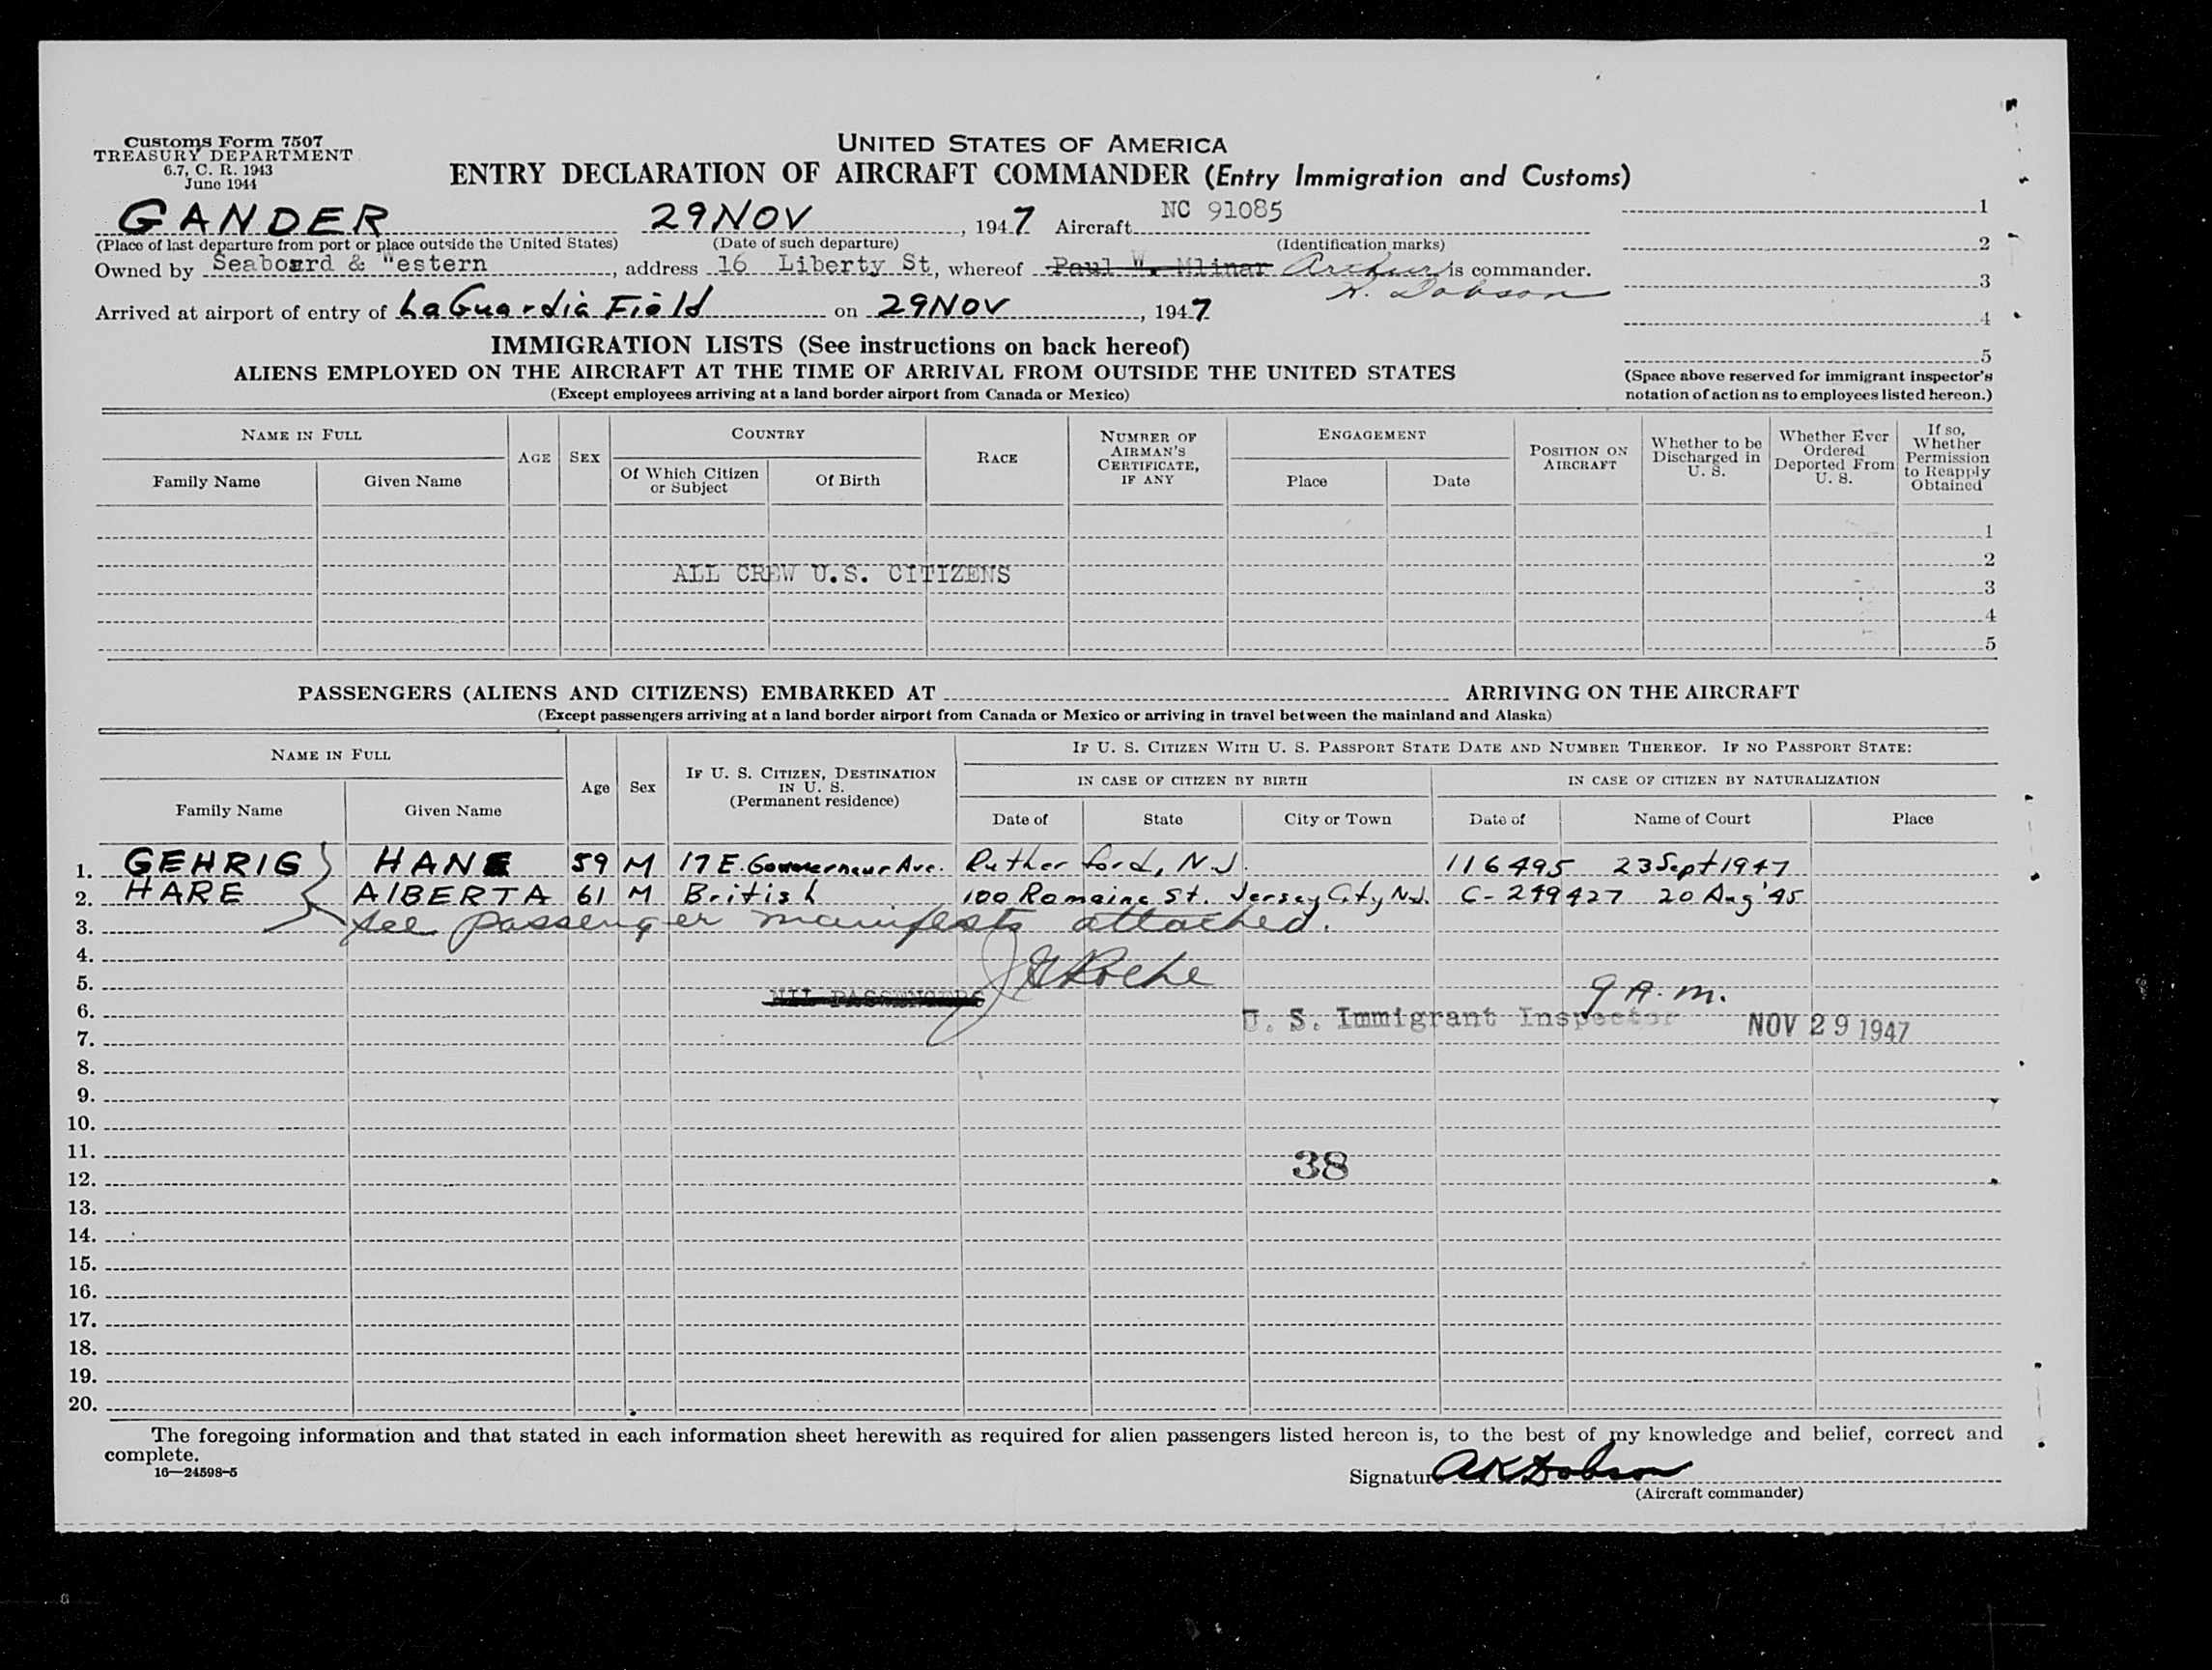 Customs Form 7507
TREASURY DEPARTMENT
6.7, C. R. 1943
June 1944
UNITED STATES OF AMERICA
ENTRY DECLARATION OF AIRCRAFT COMMANDER (Entry Immigration and Customs)
GANDER 29 NOV, 1947 Aircraft NC 91085
(Place of last departure from port or place outside the United States) (Date of such departure) (Identification marks)
Owned by Seaboard & "estern, address 16 Liberty St, whereof Paul W. Mlinar Arthur is commander.
K. Dobson
Arrived at airport of entry of LaGuardia Field on 29 NOV, 1947
1
2
3
4
5
(Space above reserved for immigrant inspector's
notation of action as to employees listed hereon.)
IMMIGRATION LISTS (See instructions on back hereof)
ALIENS EMPLOYED ON THE AIRCRAFT AT THE TIME OF ARRIVAL FROM OUTSIDE THE UNITED STATES
(Except employees arriving at a land border airport from Canada or Mexico)
NAME IN FULL
Family Name Given Name
AGE SEX
COUNTRY
Of Which Citizen or Subject Of Birth
RACE
NUMBER OF AIRMAN'S CERTIFICATE, IF ANY
ENGAGEMENT
Place Date
POSITION ON AIRCRAFT
Whether to be Discharged in U. S.
Whether Ever Ordered Deported From U. S.
If so, Whether Permission to Reapply Obtained
1
2
ALL CREW U.S. CITIZENS
3
4
5
PASSENGERS (ALIENS AND CITIZENS) EMBARKED AT ARRIVING ON THE AIRCRAFT
(Except passengers arriving at a land border airport from Canada or Mexico or arriving in travel between the mainland and Alaska)
NAME IN FULL
Family Name Given Name
Age Sex
IF U. S. CITIZEN, DESTINATION IN U. S. (Permanent residence)
IF U. S. CITIZEN WITH U. S. PASSPORT STATE DATE AND NUMBER THEREOF. IF NO PASSPORT STATE:
IN CASE OF CITIZEN BY BIRTH IN CASE OF CITIZEN BY NATURALIZATION
Date of State City or Town Date of Name of Court Place
1. GEHRIG HANS 59 M 17 E. Gouverneur Ave. Rutherford, N.J. 116495 23 Sept 1947
2. HARE AlBERTA 61 M British 100 Romaine St. Jersey City N.J. C-299427 20 Aug '45
3. see passenger manifests attached.
4.
5. Roche
NIL PASSENGERS 9 A.m.
6. U. S. Immigrant Inspector NOV 29 1947
7.
8.
9.
10.
11.
38
12.
13.
14.
15.
16.
17.
18.
19.
20.
The foregoing information and that stated in each information sheet herewith as required for alien passengers listed hereon is, to the best of my knowledge and belief, correct and
complete.
16—24598-5
Signature AK Dobson
(Aircraft commander)